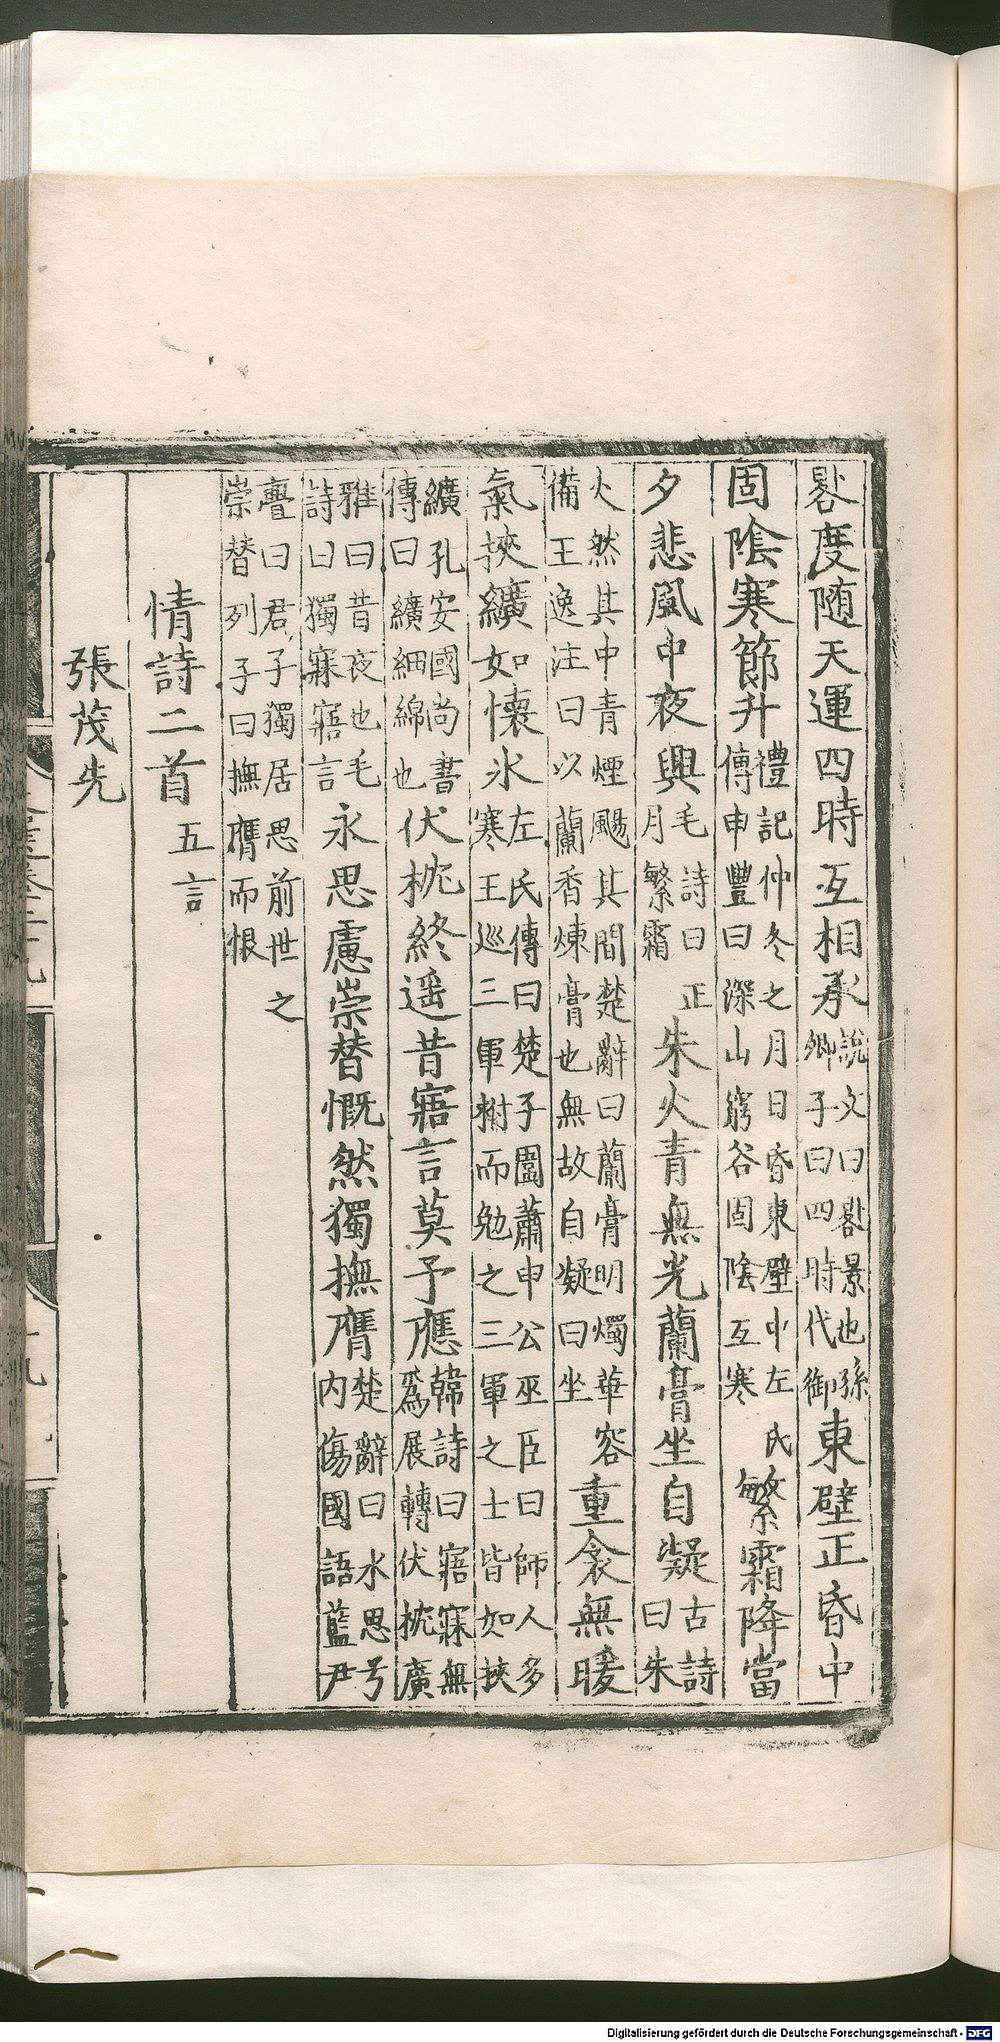 晷度随天運四時互相承說文曰晷景也孫卿子曰四時代御東壁正昏中
固陰寒節升禮記仲冬之月日昏東壁中左氏傳申豐曰深山窮谷固陰互寒繁霜降當
夕悲風中夜興毛詩曰正月繁霜朱火青無光蘭膏坐自凝古詩曰朱
火然其中青煙颺其間楚辭曰蘭膏明燭華容備王逸注曰以蘭香煉膏也無故自凝曰坐重衾無暖
氣挾纊如懷氷左氏傳曰楚子圍蕭申公巫臣曰師人多寒王巡三軍拊而勉之三軍之士皆如挾
纊孔安國尚書傳曰纊細綿也伏枕終遥昔寤言莫予應韓詩曰寤寐無爲展轉伏枕廣
雅曰昔夜也毛詩曰獨寐寤言永思慮崇替慨然獨撫膺楚辭曰永思兮内傷國語藍尹
亹曰君子獨居思前世之崇替列子曰撫膺而恨
情詩二首五言
張茂先
Digitalisierung gefördert durch die Deutsche Forschungsgemeinschaft - DFG